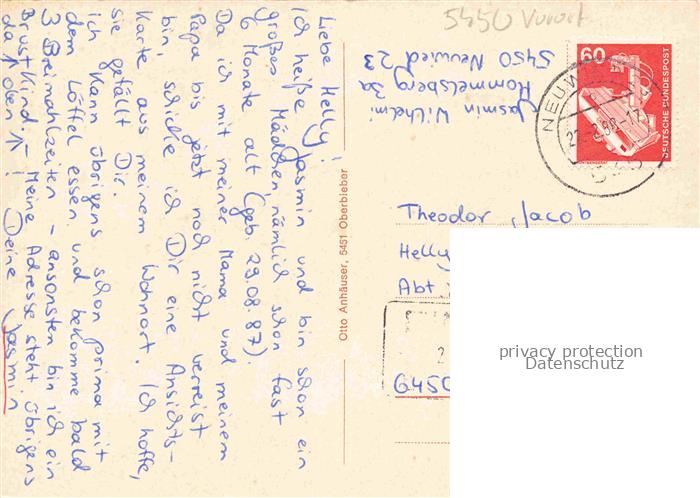 Liebe Helly!
Ich heiße Jasmin und bin schon ein
großes Mädchen, nämlich schon fast
6 Monate alt (geb. 29.08.87).
Da ich mit meiner Mama und meinem
Papa bis jetzt noch nicht verreist
bin, schicke ich Dir eine Ansichts-
Karte aus meinem Wohnort. Ich hoffe,
sie gefällt Dir.
Ich kann übrigens schon prima mit
dem Löffel essen und bekomme bald
3 Breimahlzeiten - ansonsten bin ich ein
Brustkind. - Meine Adresse steht übrigens
da ↑ oben ↑ ! Deine Jasmin
Otto Anhäuser, 5451 Oberbieber
5450 Vorort
Jasmin Wilhelmi
Rommelsberg 3a
5450 Neuwied 23
60
DEUTSCHE BUNDESPOST
NEUWIED
Theodor Jacob
Helly
Abt
6450
privacy protection
Datenschutz